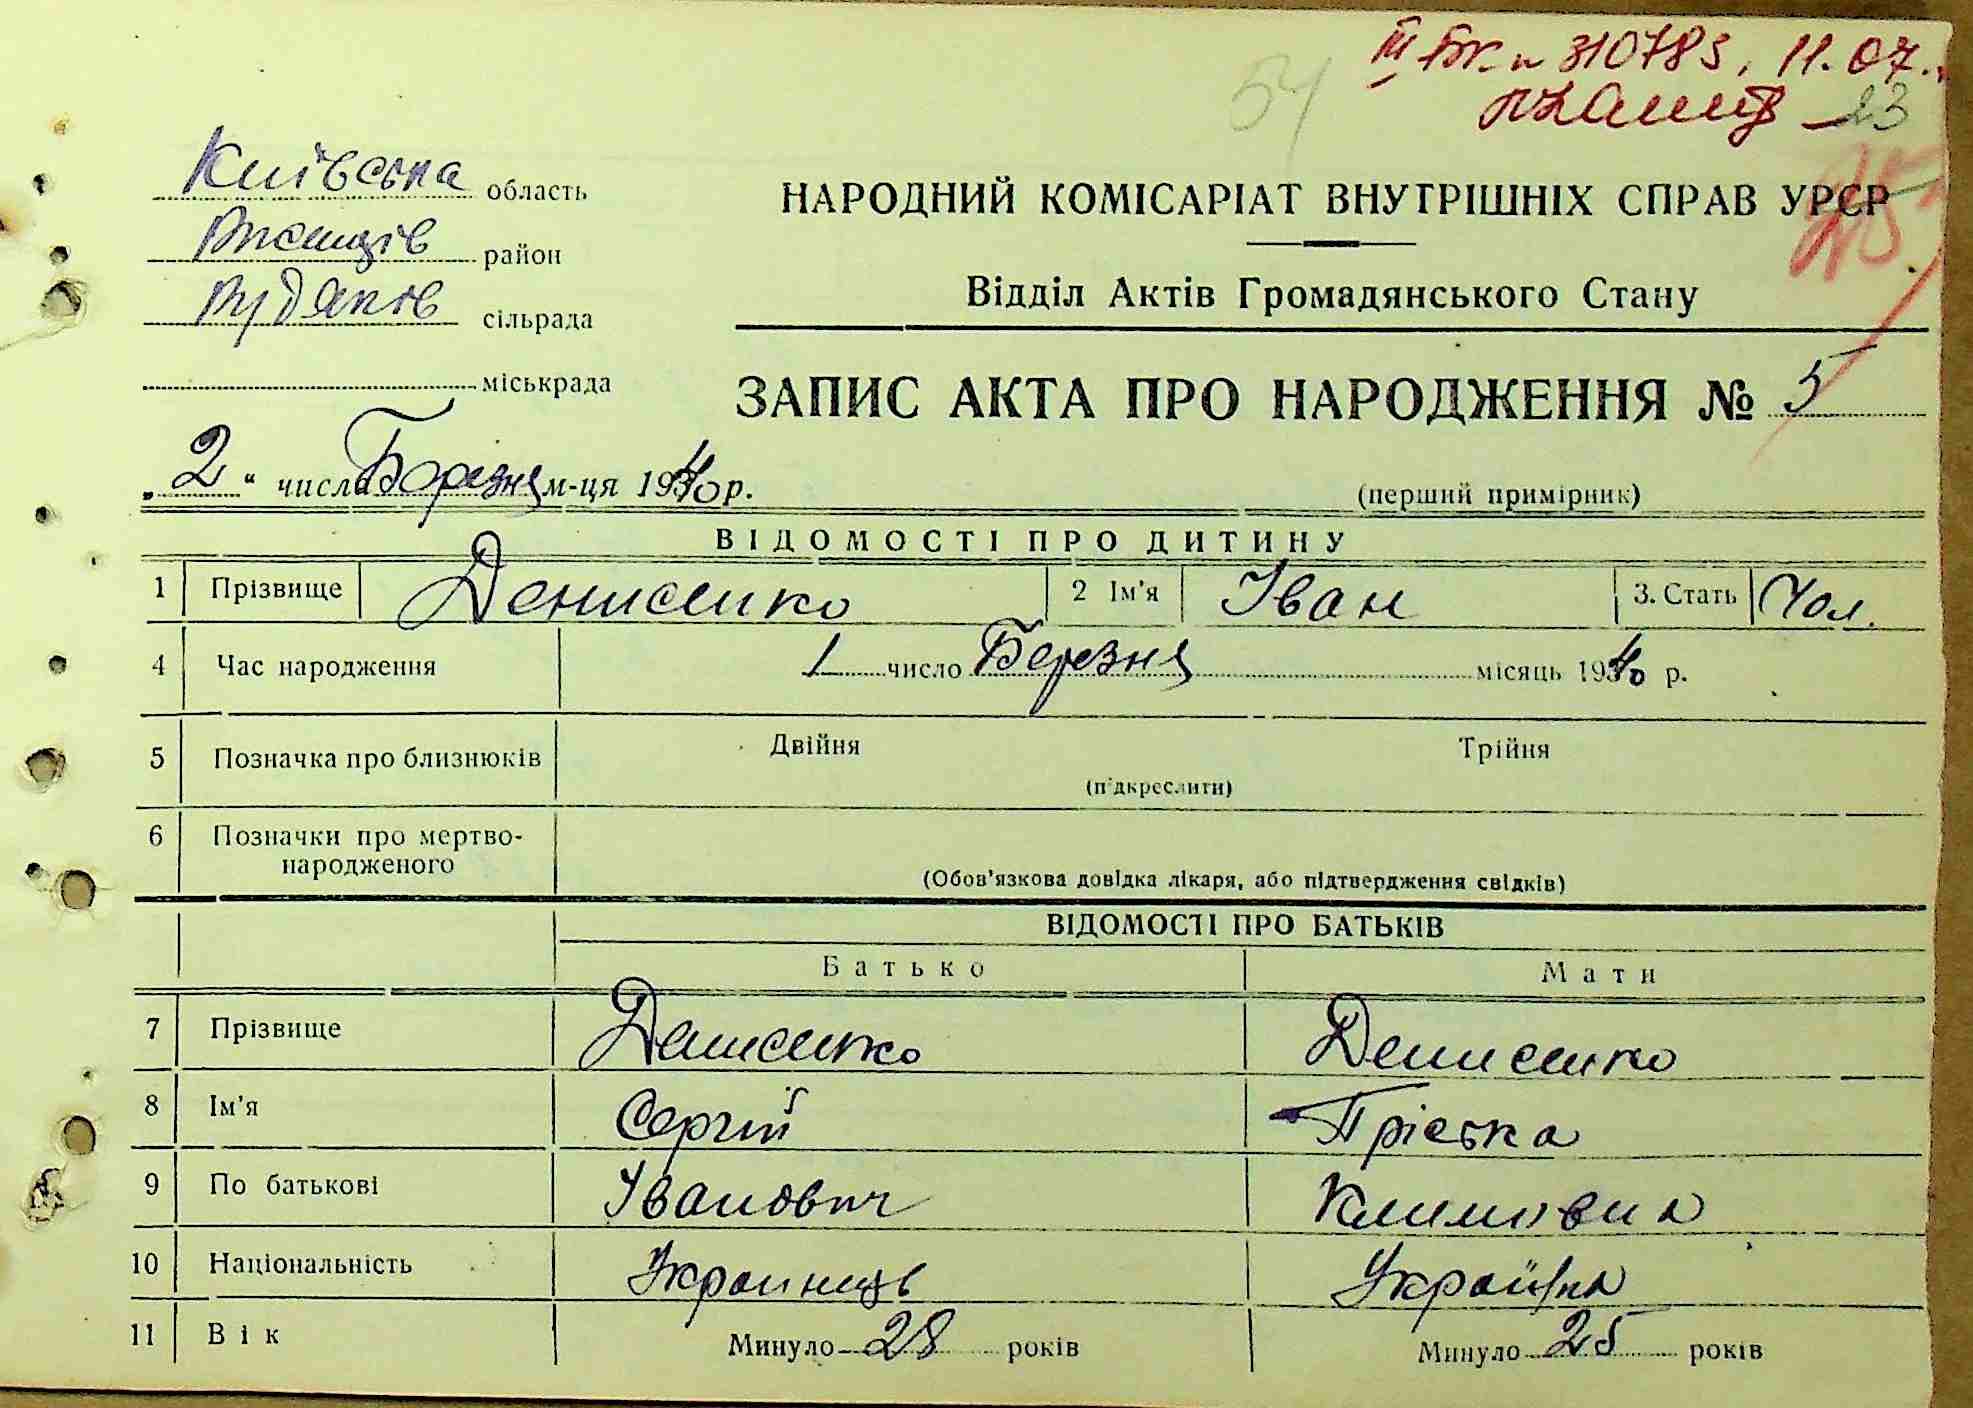 54
III БК № 310783, 11.07.
23
Київська область
район
Рудяків сільрада
міськрада
НАРОДНИЙ КОМІСАРІАТ ВНУТРІШНІХ СПРАВ УРСР
Відділ Актів Громадянського Стану
ЗАПИС АКТА ПРО НАРОДЖЕННЯ № 5
„2“ числа Березня м-ця 1940 р.
(перший примірник)
ВІДОМОСТІ ПРО ДИТИНУ
1 Прізвище Денисенко 2 Ім'я Іван 3. Стать Чол.
4 Час народження 1 число Березня місяць 1940 р.
5 Позначка про близнюків Двійня Трійня
(підкреслити)
6 Позначки про мертво-
народженого
(Обов'язкова довідка лікаря, або підтвердження свідків)
ВІДОМОСТІ ПРО БАТЬКІВ
Батько Мати
7 Прізвище Денисенко Денисенко
8 Ім'я Сергій Пріська
9 По батькові Іванович Климовна
10 Національність Украинець Українка
11 Вік Минуло 28 років Минуло 25 років